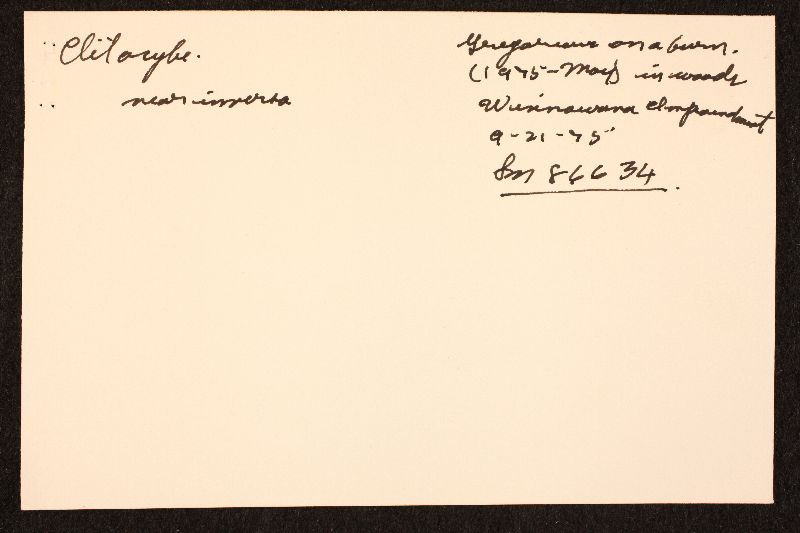 Clitocybe.
near inversa
Gregarious on a burn.
(1975-May) in woods
Winnawana Impoundment
9-21-75
Sm 86634